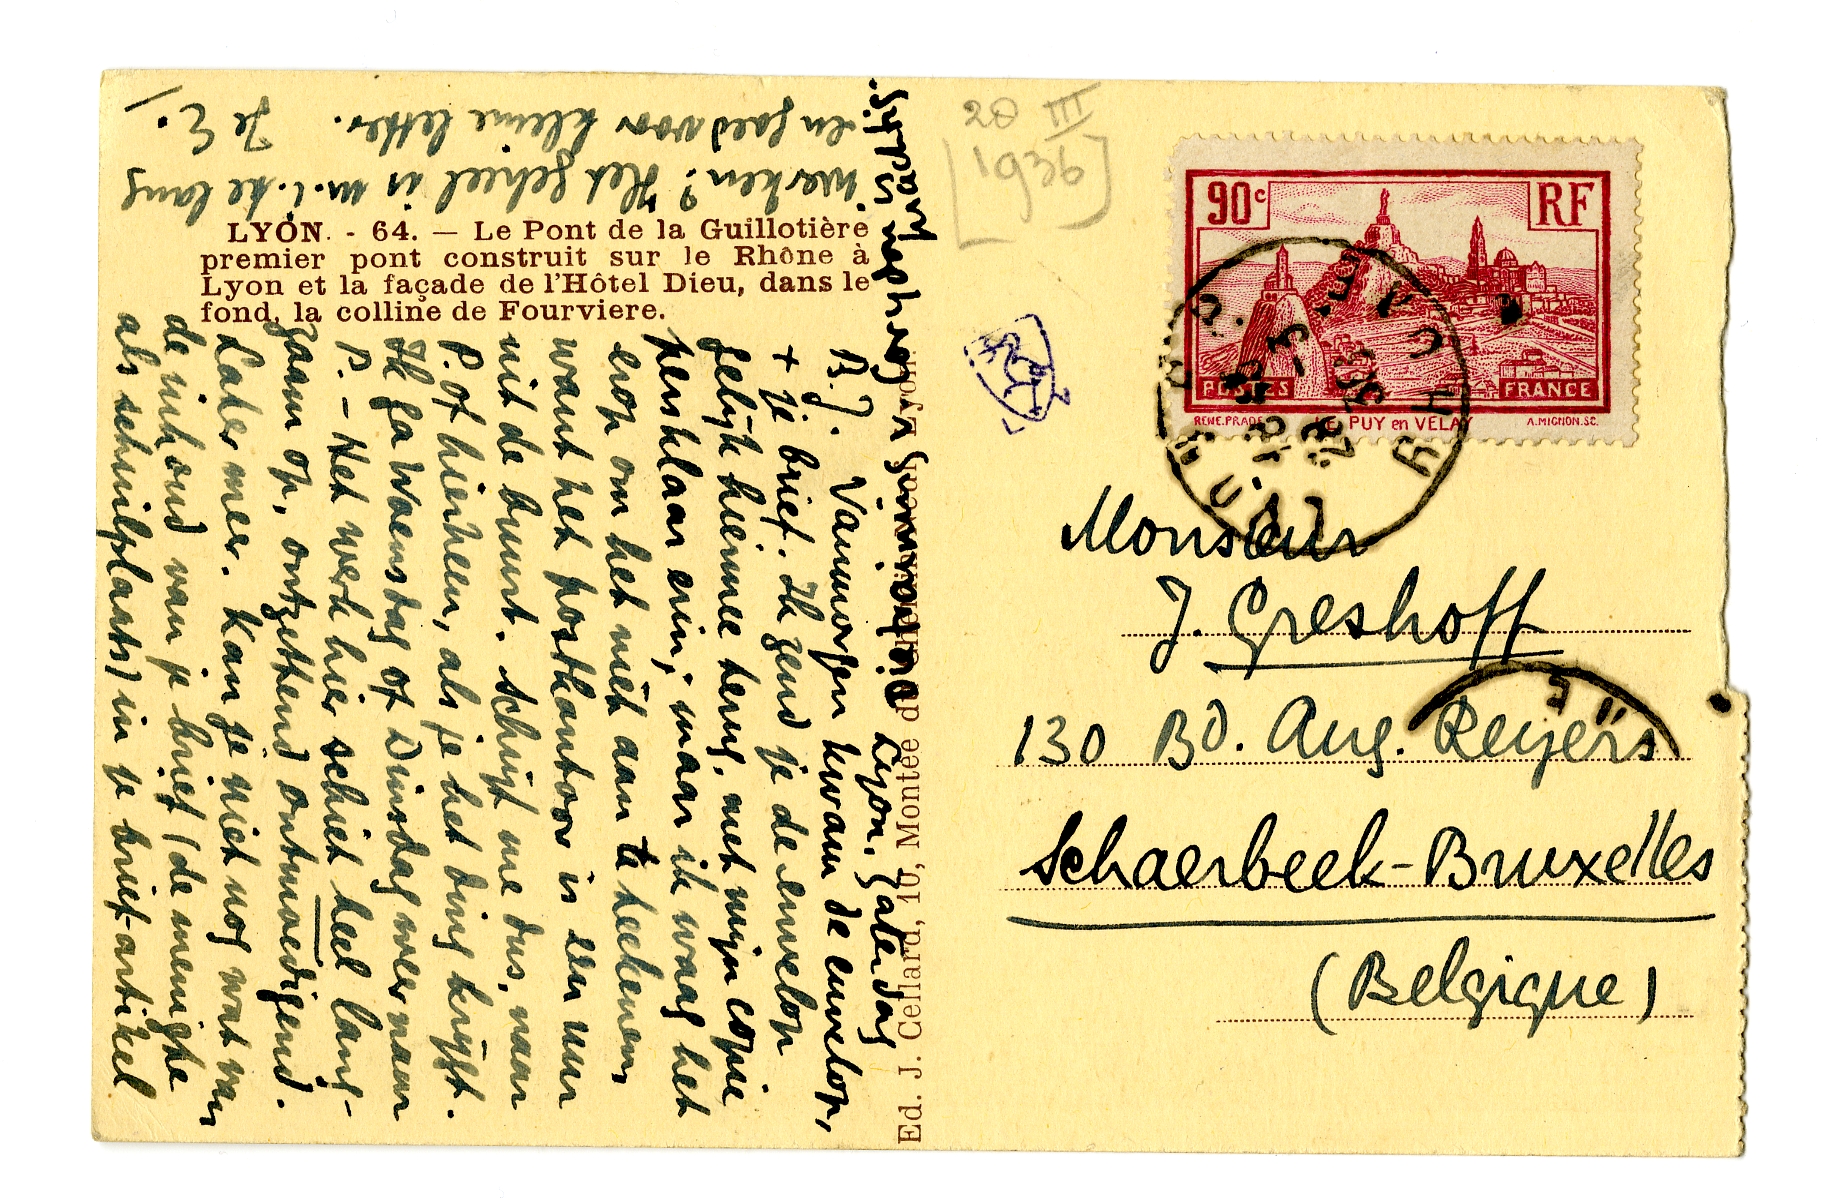 LYON. - 64. — Le Pont de la Guillotière
premier pont construit sur le Rhône à
Lyon et la façade de l'Hôtel Dieu, dans le
fond, la colline de Fourviere.
Lyon. Zaterdag
B.J. Vanmorgen kwam de envelop,
+ je brief. Ik zend je de envelop
gelijk hiermee terug, met mijn copie
persklaar erin; maar ik waag het
erop om het niét aan te teekenen,
want het postkantoor is één uur
uit de buurt. Schrijf me dus, naar
P. of hierheen, als je het ding krijgt.
Ik ga Woensdag of Dinsdag weer naar
P. – Het werk hier schiet heel lang-
zaam op, ontzettend ontmoedigend.
Later meer. Kan je niet nog wat van
de inhoud van je brief (de menigte
als schuilplaats) in je brief-artikel
werken? Het geheel is m.i. te lang
en goed voor kleine letter. Je E.
Diepairing Ed. J. Cellard, 10, Montée du Lyon.
20 III
[1936]
90c RF
POSTES FRANCE
LE PUY en VELAY
A. MIGNON. SC.
Monsieur
J. Greshoff
130 Bd. Aug. Reyers
Schaerbeek-Bruxelles
(Belgique)